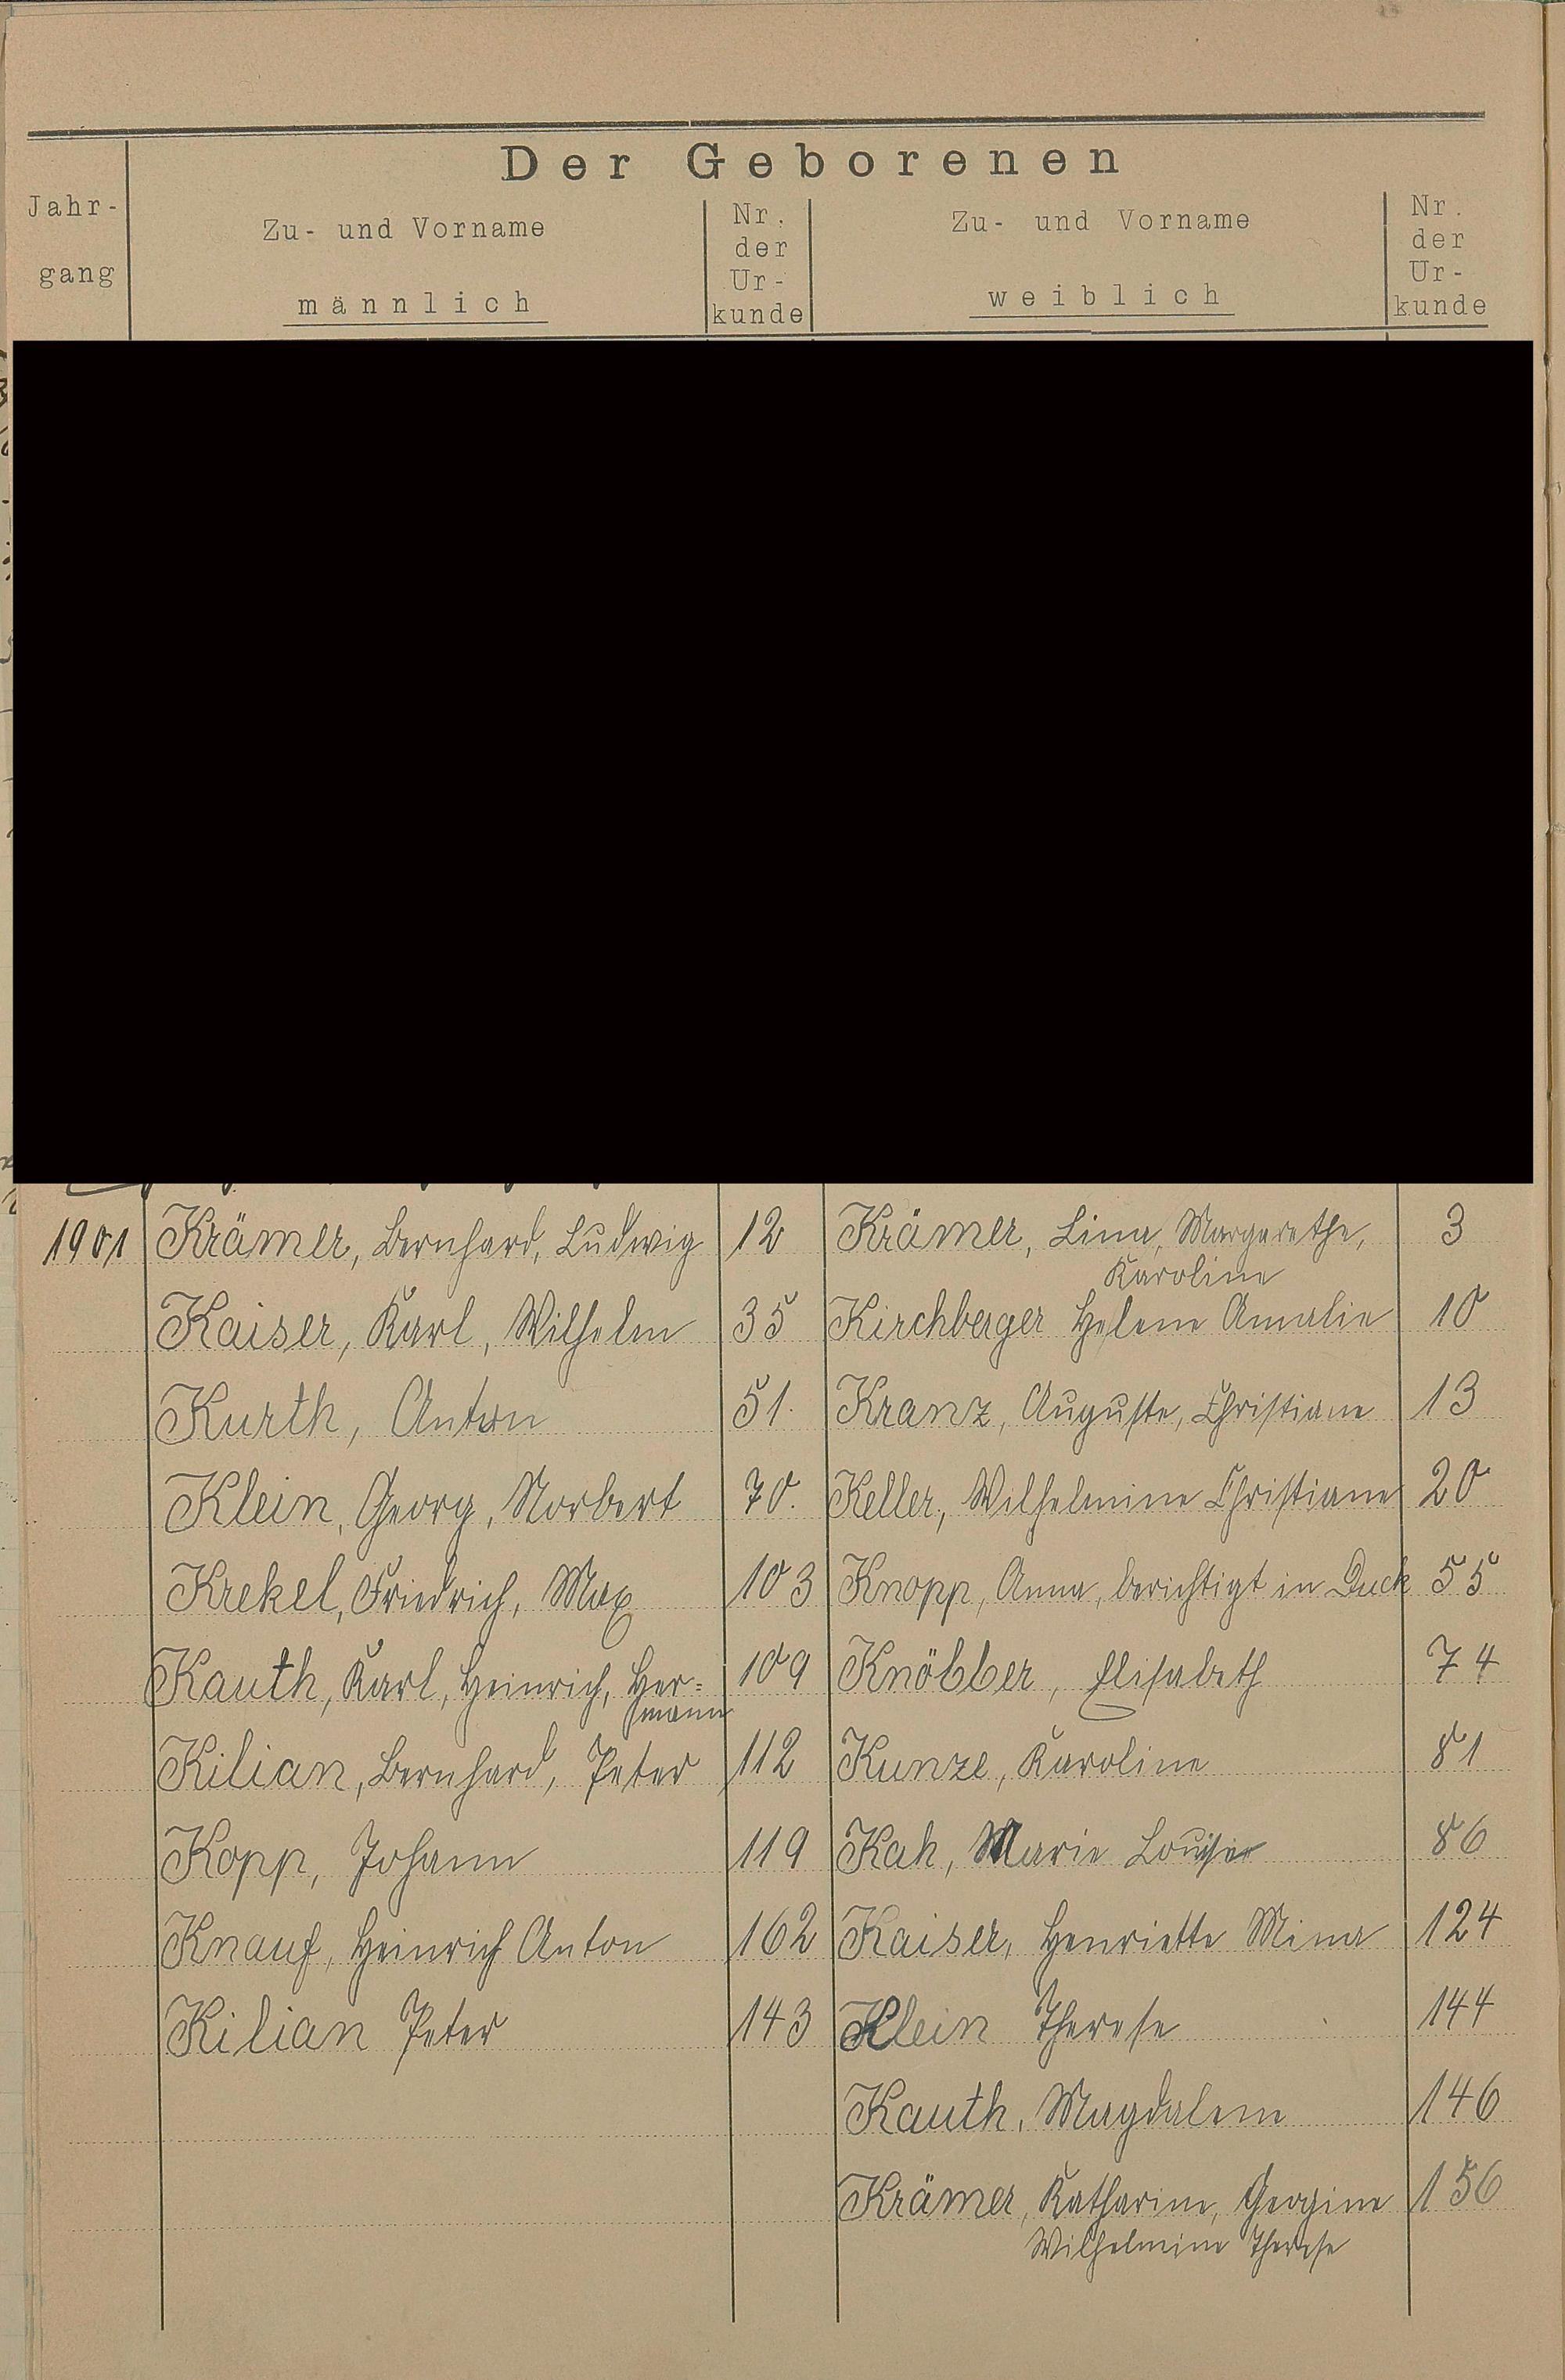 Der Geborenen
Jahr-
gang
Zu- und Vorname
männlich
Nr.
der
Ur-
kunde
Zu- und Vorname
weiblich
Nr.
der
Ur-
kunde
1901 Krämer, Bernhard, Ludwig 12 Krämer, Lina, Margarethe, 3
Karoline
Kaiser, Karl, Wilhelm 35 Kirchberger Helene Amalie 10
Kurth, Anton 51. Kranz, Auguste, Christiane 13
Klein, Georg, Norbert 70. Keller, Wilhelmine Christiane 20
Krekel, Friedrich, Max 103 Knopp, Anna, berichtigt in Duck 55
Kauth, Karl, Heinrich, Her= 109 Knöbber, Elisabeth 74
mann
Kilian, Bernhard, Peter 112 Kunze, Karoline 81
Kopp, Johann 119 Kah, Marie Louise 86
Knauf, Heinrich Anton 162 Kaiser, Henriette Mina 124
Kilian Peter 143 Klein Therese 144
Kauth, Magdalene 146
Krämer, Katharine, Georgine 156
Wilhelmine Therese